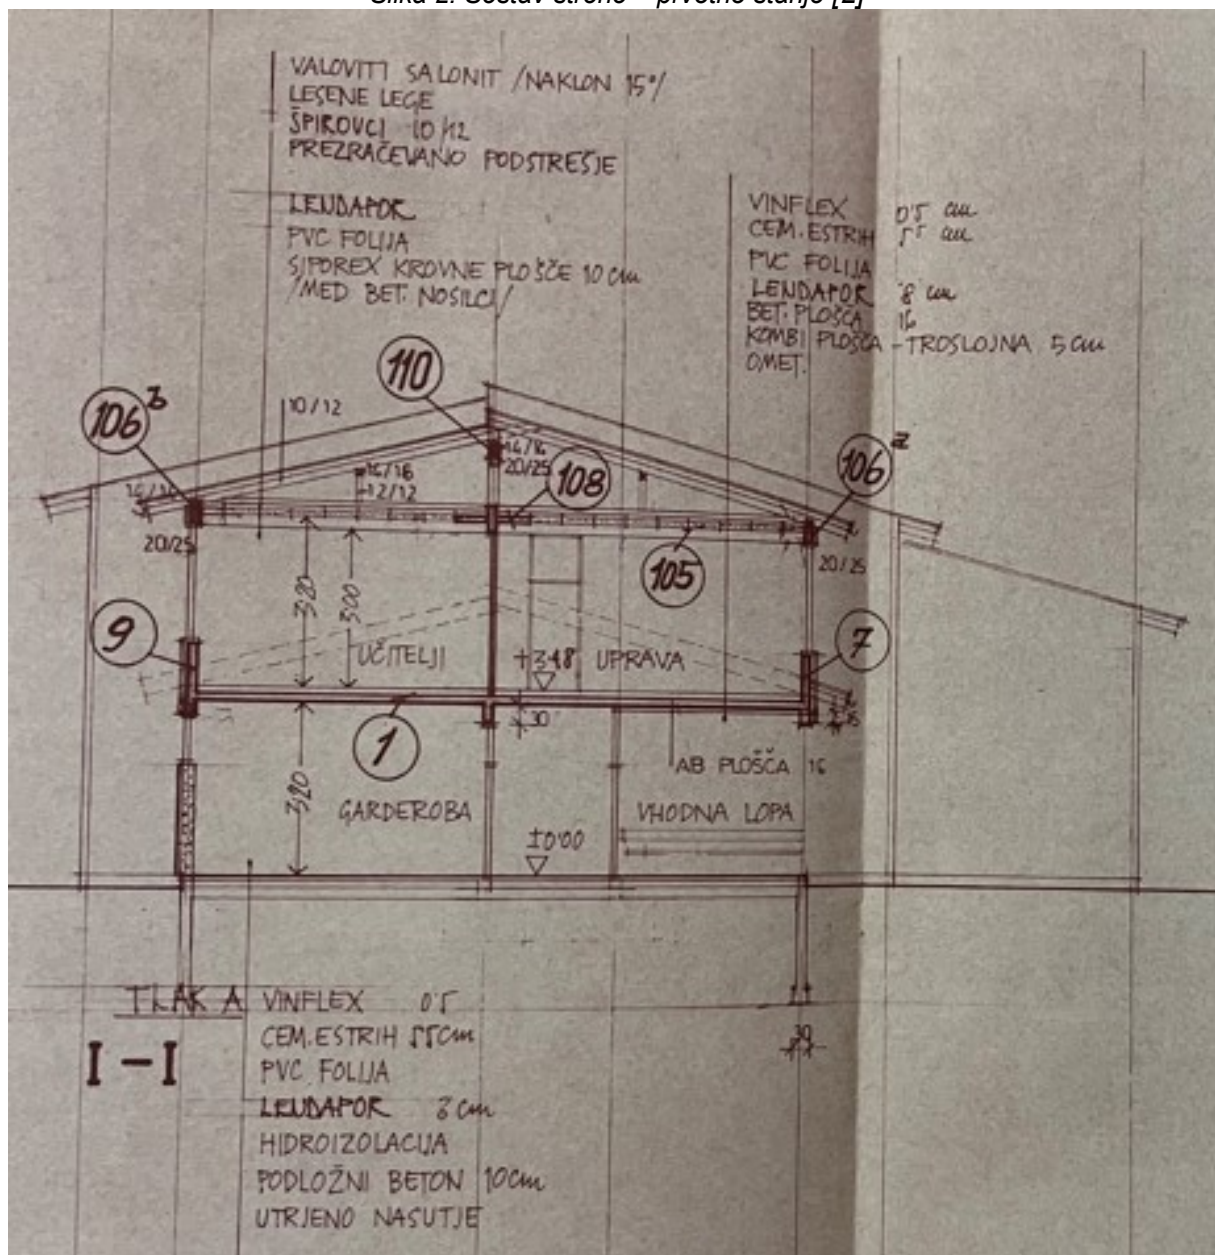 Slika 2: Sestav strehe – prvotno stanje [2]
VALOVITI SALONIT /NAKLON 15°/
LESENE LEGE
ŠPIROVCI 10/12
PREZRAČEVANO PODSTREŠJE
LENDAPOR
PVC FOLIJA
SIPOREX KROVNE PLOŠČE 10 cm
/MED BET. NOSILCI/
VINFLEX 0'5 cm
CEM. ESTRIH 5'5 cm
PVC FOLIJA
LENDAPOR 8 cm
BET. PLOŠČA 16
KOMBI PLOŠČA - TROSLOJNA 5 cm
OMET.
110
106 b
10/12
14/16
20/25
108
106 a
16/16
12/12
20/25
105
20/25
320
300
9
UČITELJI
+348
UPRAVA
7
30
1
AB PLOŠČA 16
320
GARDEROBA
VHODNA LOPA
±0'00
TLAK A
VINFLEX 0'5
CEM. ESTRIH 5'5 cm
30
I – I
PVC FOLIJA
LENDAPOR 3 cm
HIDROIZOLACIJA
PODLOŽNI BETON 10 cm
UTRJENO NASUTJE